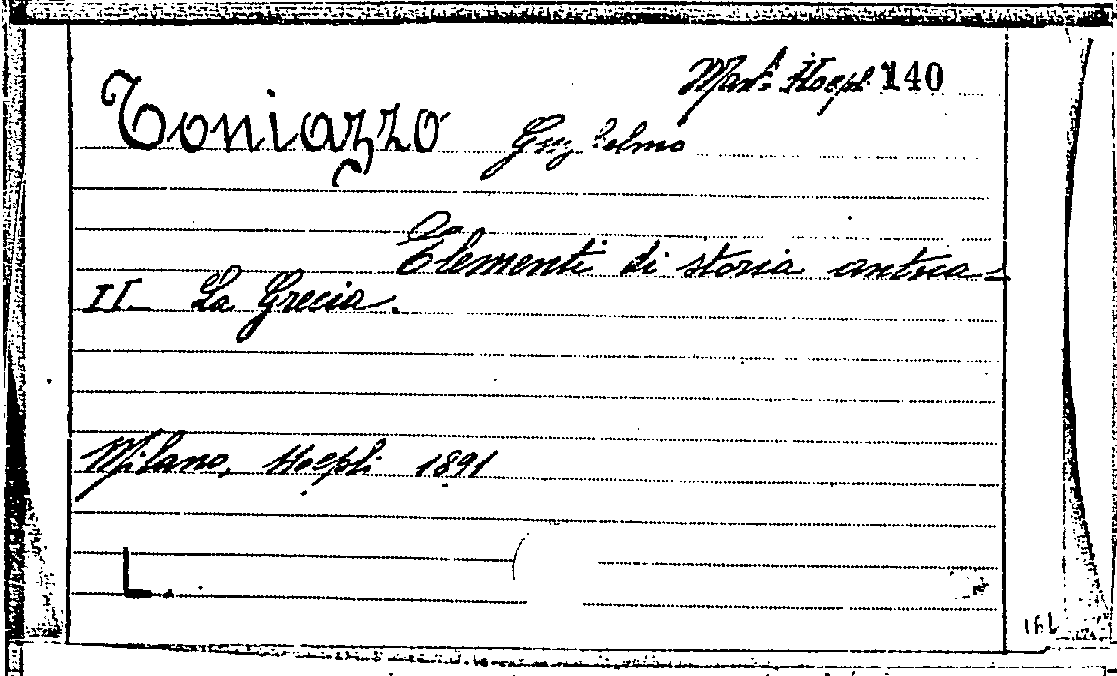 Man. Hoepl. 140
Toniazzo Guglielmo
Elementi di storia antica -
II - La Grecia.
Milano, Hoepli 1891
L.